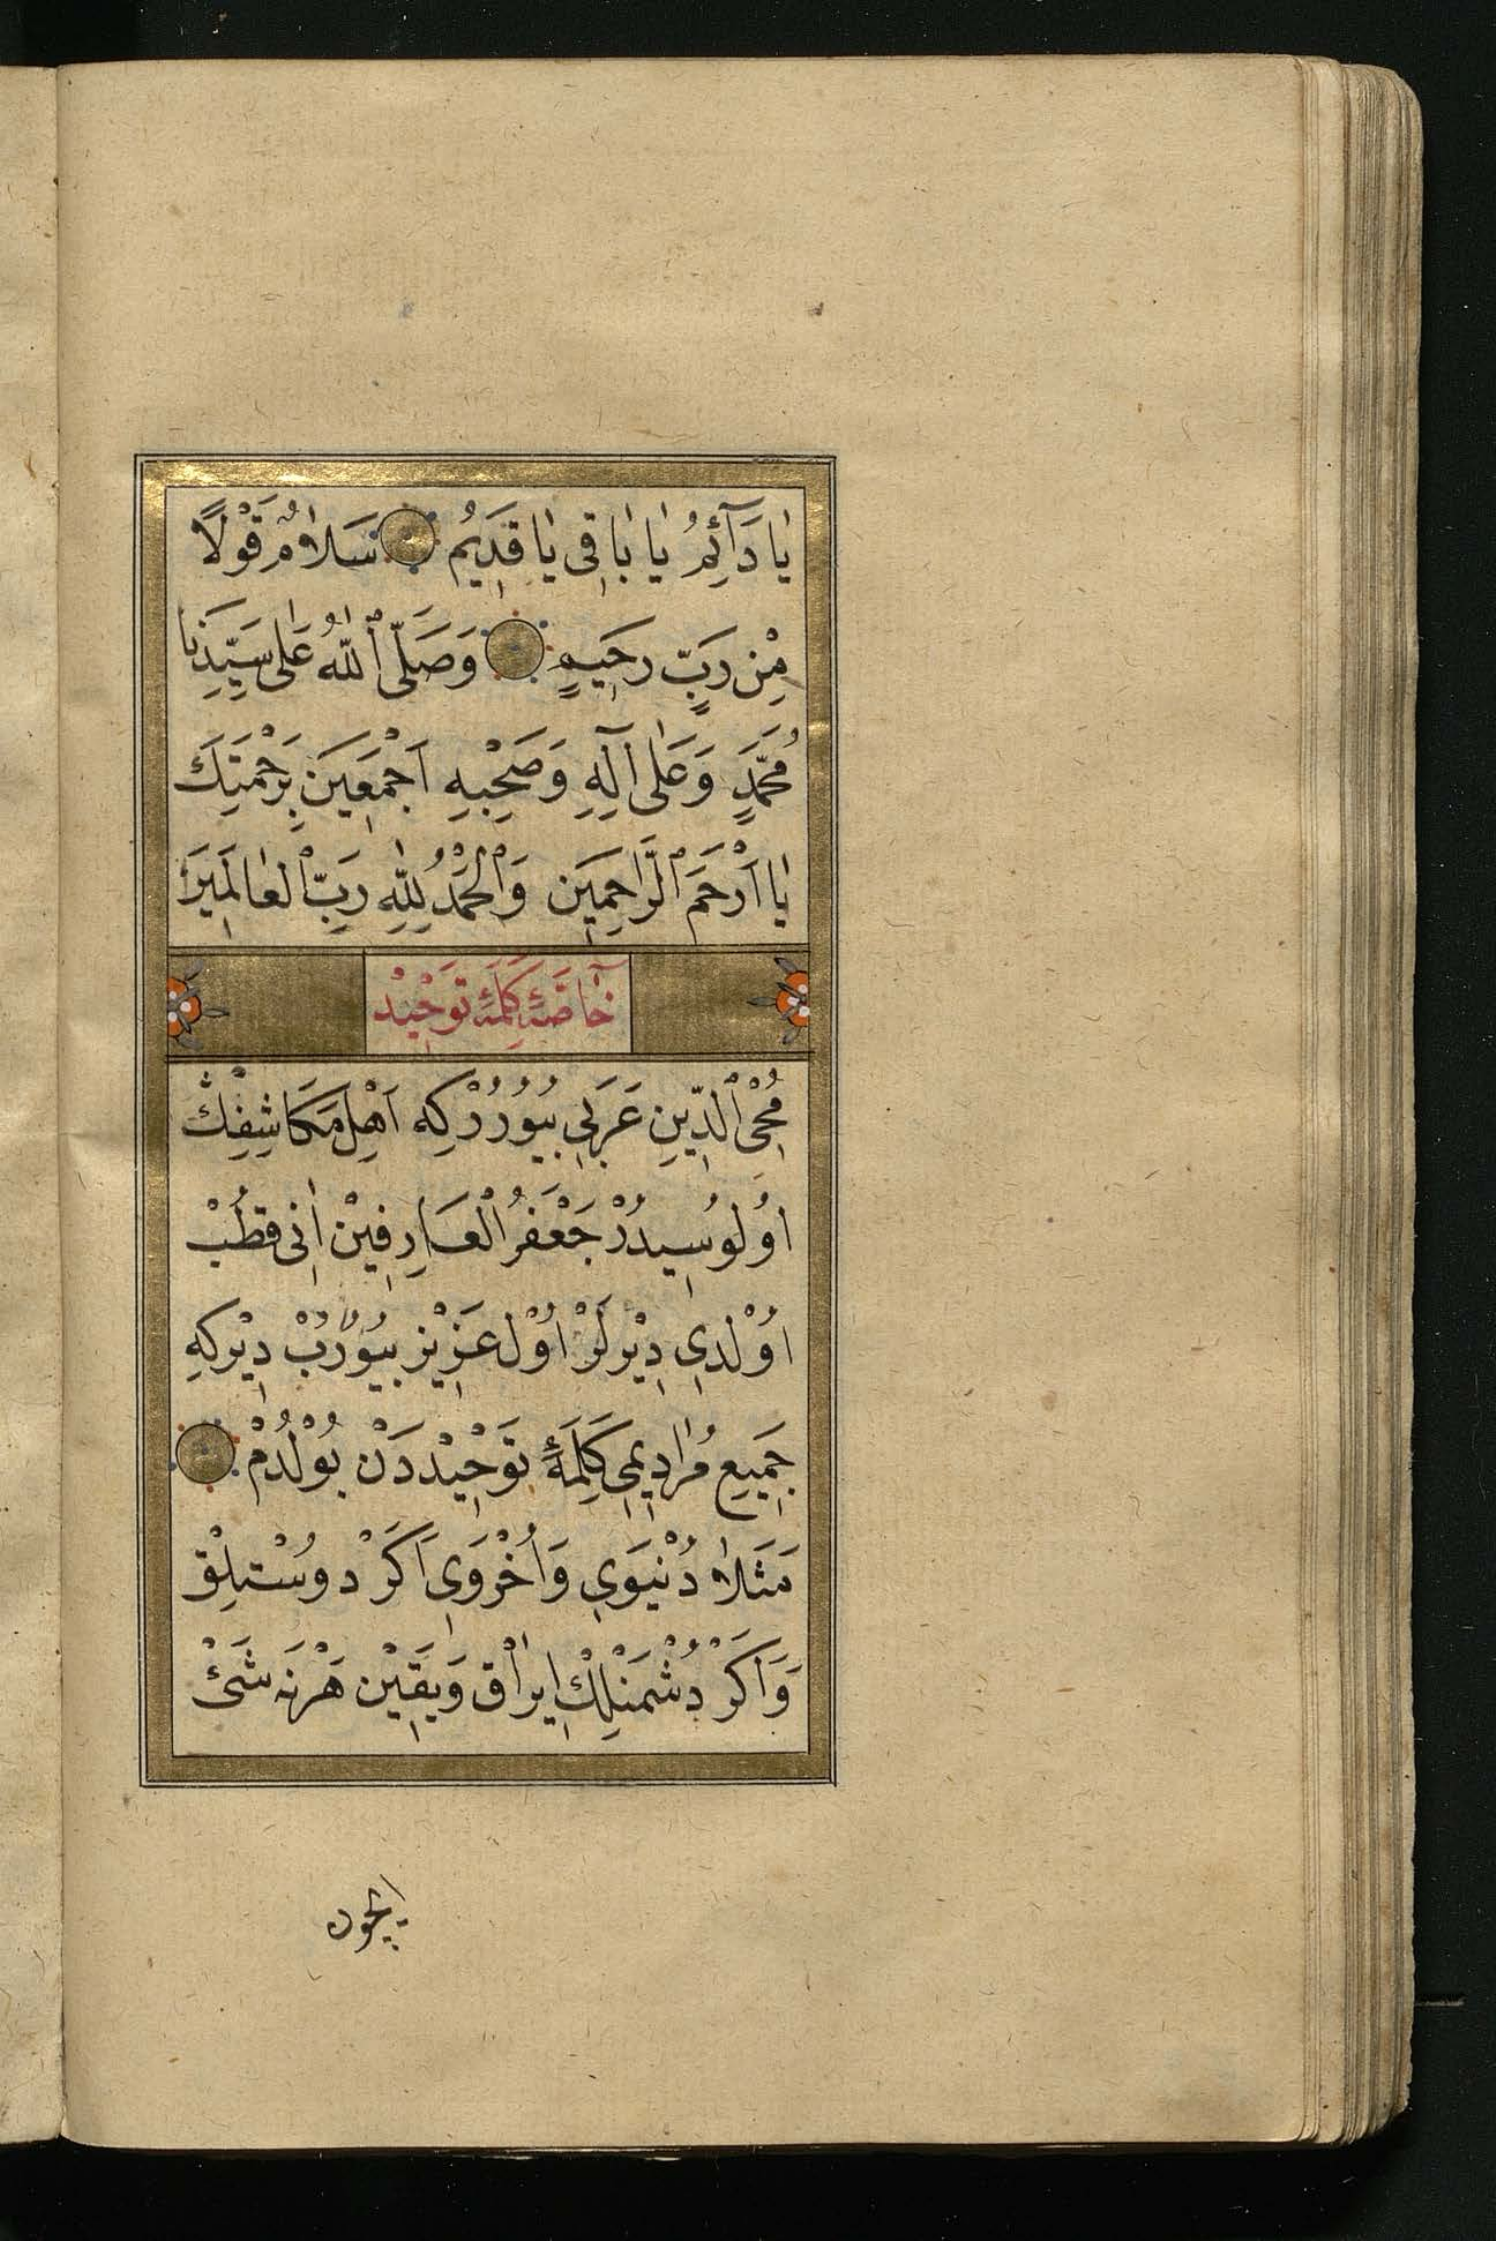 يَا دَآئِمُ يَا بَاقِى يَا قَدِيمُ سَلَامٌ قَوْلًا
مِنْ رَبٍّ رَحِيمٍ وَصَلَّى ٱللّٰهُ عَلٰى سَيِّدِنَا
مُحَمَّدٍ وَعَلٰى اٰلِهِ وَصَحْبِهِ اَجْمَعِينَ بِرَحْمَتِكَ
يَا اَرْحَمَ ٱلرَّاحِمِينَ وَٱلْحَمْدُ لِلّٰهِ رَبِّ ٱلْعَالَمِينَ
خَاصَّهٔ كَلِمَهٔ تَوْحِيدْ
مُحْيِ ٱلدِّينِ عَرَبِي بُيُورُرْكِه اَهْلِ مَكَاشِفِڭْ
اُولُوسِيدُرْ جَعْفَرُ الْعَارِفِينْ اَنِى قُطُبْ
اُولْدِي دِيْرلَرْ اُولْ عَزِيْز بُيُورُبْ دِيْركِهِ
جَمِيعِ مُرَادِيمِي كَلِمَهٔ تَوْحِيدْدَنْ بُولْدُمْ
مَثَلَا دُنْيَوِي وَاُخْرَوِي اَكَرْ دُوسْتلِقْ
وَاَكَرْ دُشْمَنْلِكْ اِيرَاقْ وَيَقِيْن هَرْنَه شَىْ
ايچون